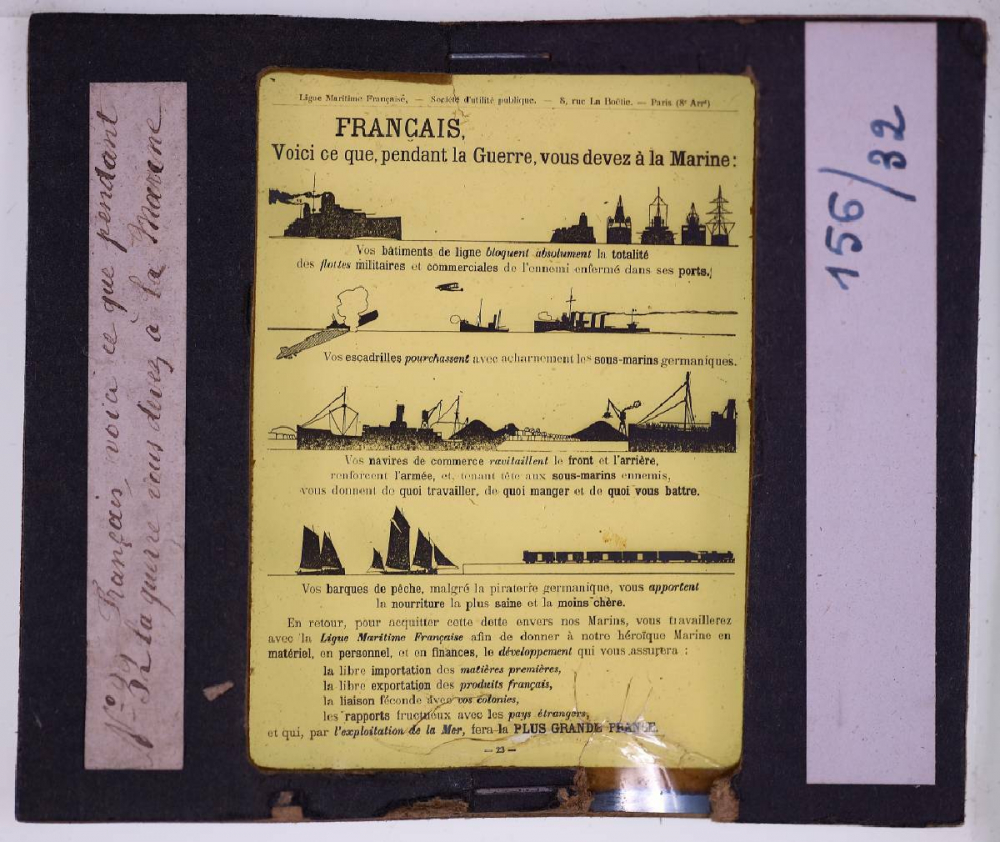 Ligue Maritime Française. — Société d'utilité publique. — 8, rue La Boëtie. — Paris (8e Arrt)
FRANÇAIS,
Voici ce que, pendant la Guerre, vous devez à la Marine :
Vos bâtiments de ligne bloquent absolument la totalité
des flottes militaires et commerciales de l'ennemi enfermé dans ses ports.
Vos escadrilles pourchassent avec acharnement les sous-marins germaniques.
Vos navires de commerce ravitaillent le front et l'arrière,
renforcent l'armée, et, tenant tête aux sous-marins ennemis,
vous donnent de quoi travailler, de quoi manger et de quoi vous battre.
Vos barques de pêche, malgré la piraterie germanique, vous apportent
la nourriture la plus saine et la moins chère.
En retour, pour acquitter cette dette envers nos Marins, vous travaillerez
avec la Ligue Maritime Française afin de donner à notre héroïque Marine en
matériel, en personnel, et en finances, le développement qui vous assurera :
la libre importation des matières premières,
la libre exportation des produits français,
la liaison féconde avec vos colonies,
les rapports fructueux avec les pays étrangers,
et qui, par l'exploitation de la Mer, fera la PLUS GRANDE FRANCE.
— 23 —
Français, voici ce que pendant
la guerre vous devez à la Marine
156/32